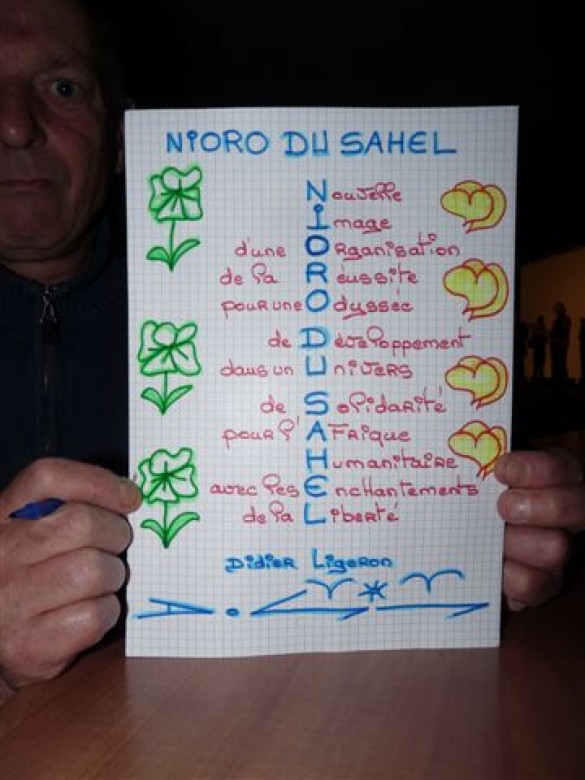 NiORO DU SAHEL
Nouvelle
Image
d'une ORganisation
de la Réussite
pour une Odyssée
de Développement
dans un Univers
de Solidarité
pour l'AFRique
Humanitaire
avec les Enchantements
de la Liberté
Didier Ligeron